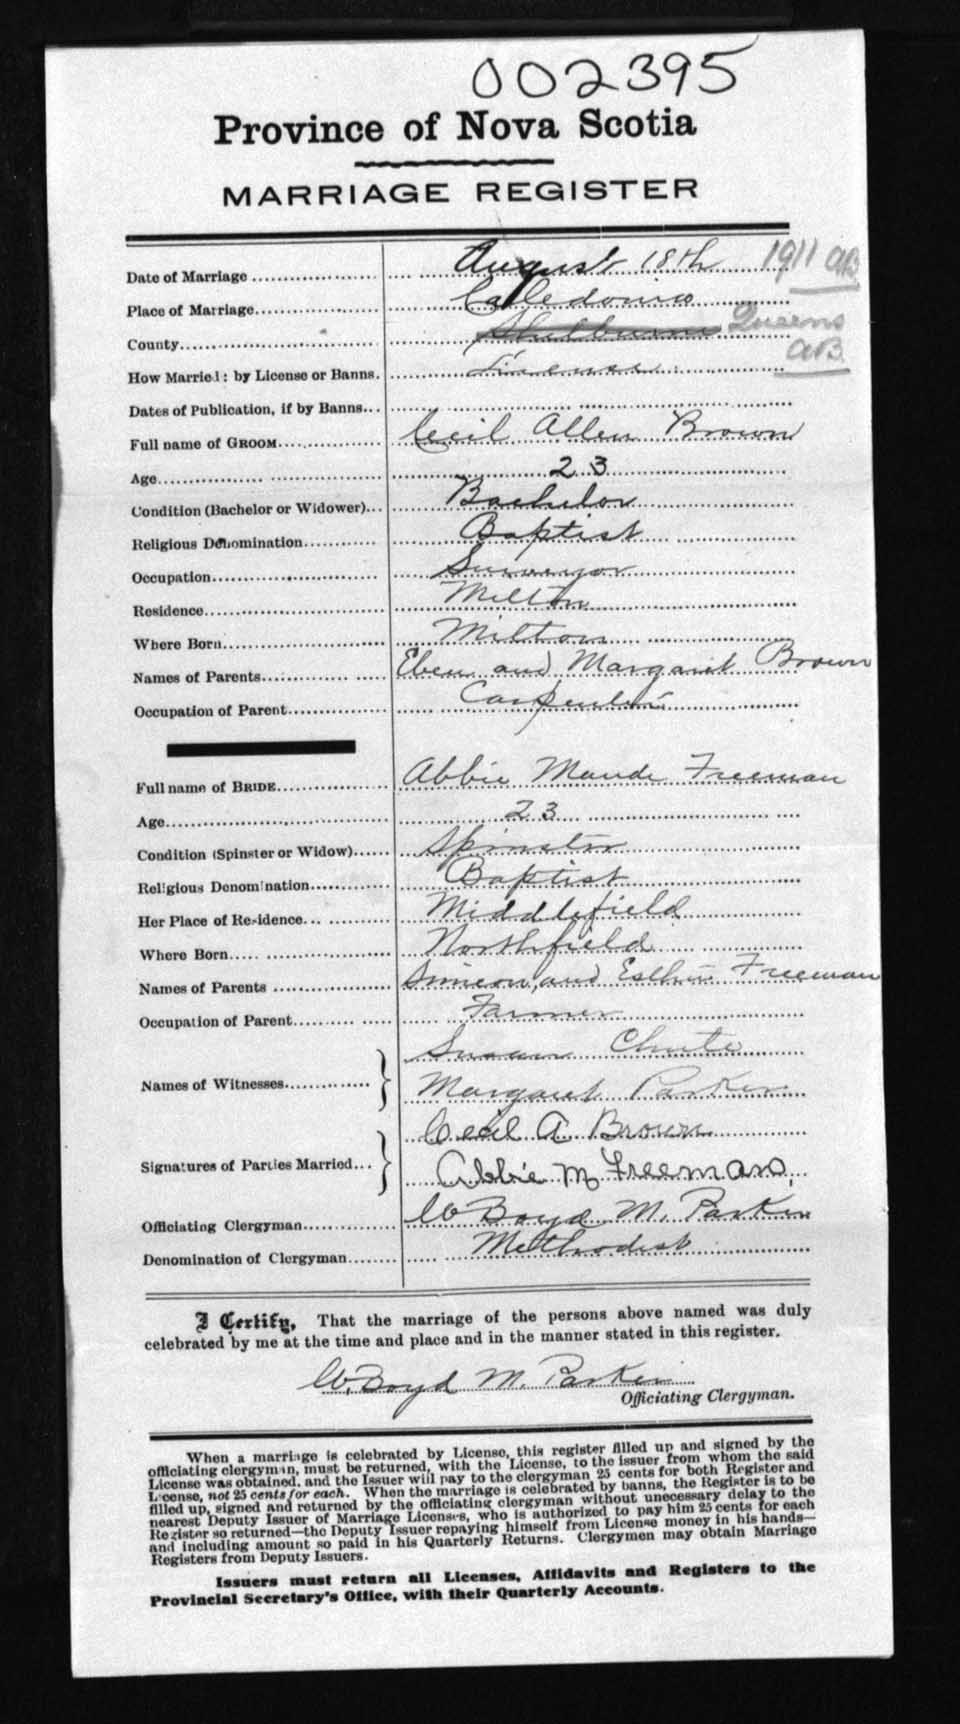 002395
Province of Nova Scotia
MARRIAGE REGISTER
Date of Marriage August 18th 1911 AB
Place of Marriage Caledonia
County Shelburne Queens
AB
How Married: by License or Banns. License
Dates of Publication, if by Banns
Full name of GROOM Cecil Allen Brown
Age 23
Condition (Bachelor or Widower) Bachelor
Religious Denomination Baptist
Occupation Surveyor
Residence Milton
Where Born Milton
Names of Parents Eben and Margaret Brown
Occupation of Parent Carpenter
Full name of BRIDE Abbie Maude Freeman
Age 23
Condition (Spinster or Widow) Spinster
Religious Denomination Baptist
Her Place of Residence Middlefield
Where Born Northfield
Names of Parents Simeon and Esther Freeman
Occupation of Parent Farmer
Susan Chute
Names of Witnesses
Margaret Parker
Cecil A Brown
Signatures of Parties Married
Abbie M Freeman
Officiating Clergyman W Boyd M. Parker
Denomination of Clergyman Methodist
I Certify, That the marriage of the persons above named was duly
celebrated by me at the time and place and in the manner stated in this register.
W. Boyd M. Parker
Officiating Clergyman.
When a marriage is celebrated by License, this register filled up and signed by the
officiating clergyman, must be returned, with the License, to the issuer from whom the said
License was obtained, and the Issuer will pay to the clergyman 25 cents for both Register and
License, not 25 cents for each. When the marriage is celebrated by banns, the Register is to be
filled up, signed and returned by the officiating clergyman without unnecessary delay to the
nearest Deputy Issuer of Marriage Licenses, who is authorized to pay him 25 cents for each
Register so returned—the Deputy Issuer repaying himself from License money in his hands—
and including amount so paid in his Quarterly Returns. Clergymen may obtain Marriage
Registers from Deputy Issuers.
Issuers must return all Licenses, Affidavits and Registers to the
Provincial Secretary's Office, with their Quarterly Accounts.